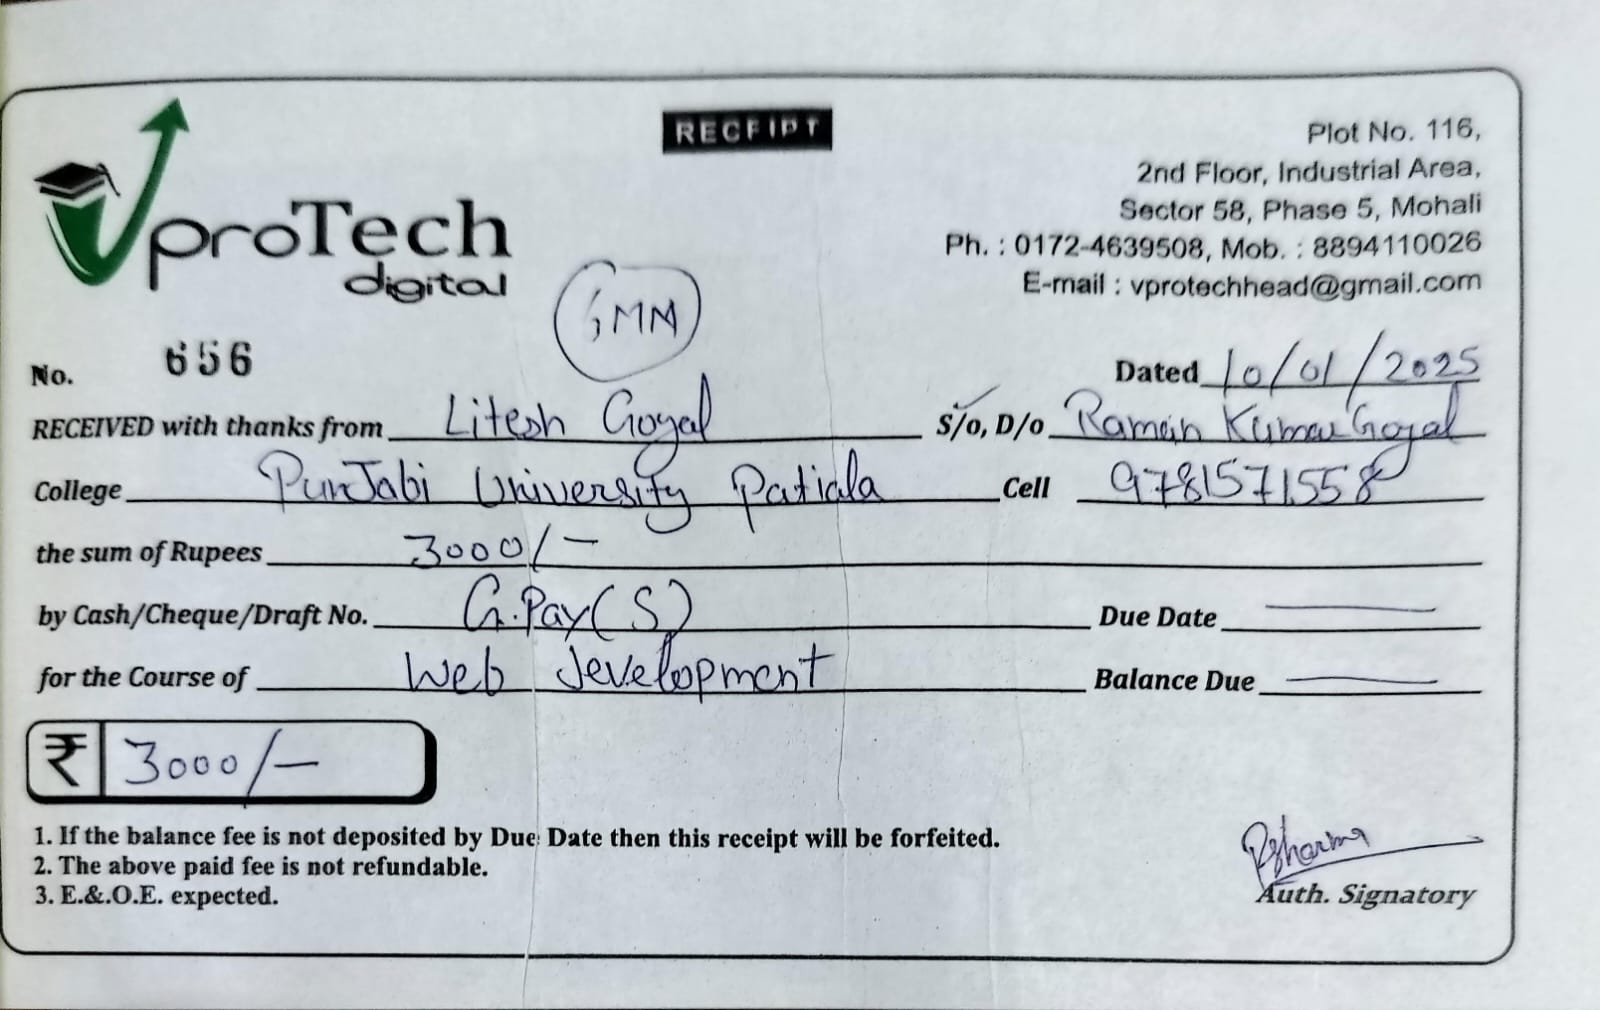 RECEIPT
VproTech
digital
Plot No. 116,
2nd Floor, Industrial Area,
Sector 58, Phase 5, Mohali
Ph. : 0172-4639508, Mob. : 8894110026
E-mail : vprotechhead@gmail.com
No. 656
Dated 10/01/2025
RECEIVED with thanks from Litesh Goyal S/o, D/o Raman Kumar Goyal
College PunJabi University Patiala Cell 9781571558
the sum of Rupees 3000/-
by Cash/Cheque/Draft No. G.Pay(S) Due Date
for the Course of Web Development Balance Due
₹ 3000/-
1. If the balance fee is not deposited by Due Date then this receipt will be forfeited.
2. The above paid fee is not refundable.
3. E.&.O.E. expected.
Rsharma
Auth. Signatory